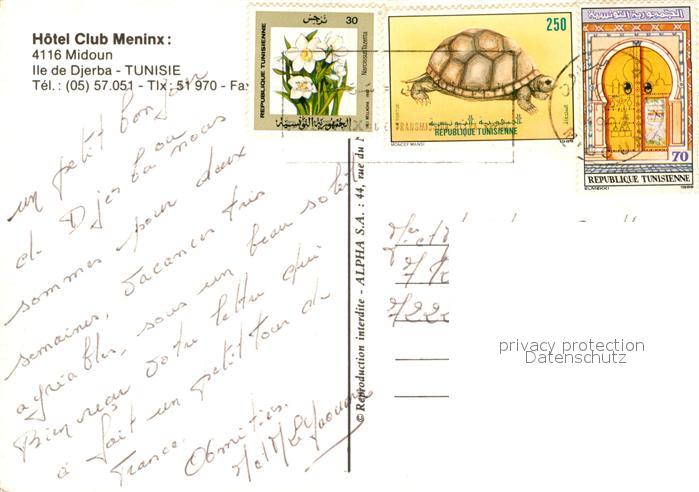 Hôtel Club Meninx :
4116 Midoun
Ile de Djerba - TUNISIE
Tél. : (05) 57.051 - Tlx : 51 970 - Fa
un petit bonjour
de Djerba ou nous
sommes pour deux
semaines, vacances très
agréables, sous un beau soleil
Bien reçu votre lettre qui
a fait un petit tour de
France. Amitiés.
© Reproduction interdite - ALPHA S.A. : 44, rue du
REPUBLIQUE TUNISIENNE
نرجس
30
Narcissus Tazetta
الجمهورية التونسية
250
TORTUE
الجمهورية التونسية
REPUBLIQUE TUNISIENNE
MONCEF MANSI
الجمهورية التونسية
70
REPUBLIQUE TUNISIENNE
ELMEKKI
privacy protection
Datenschutz